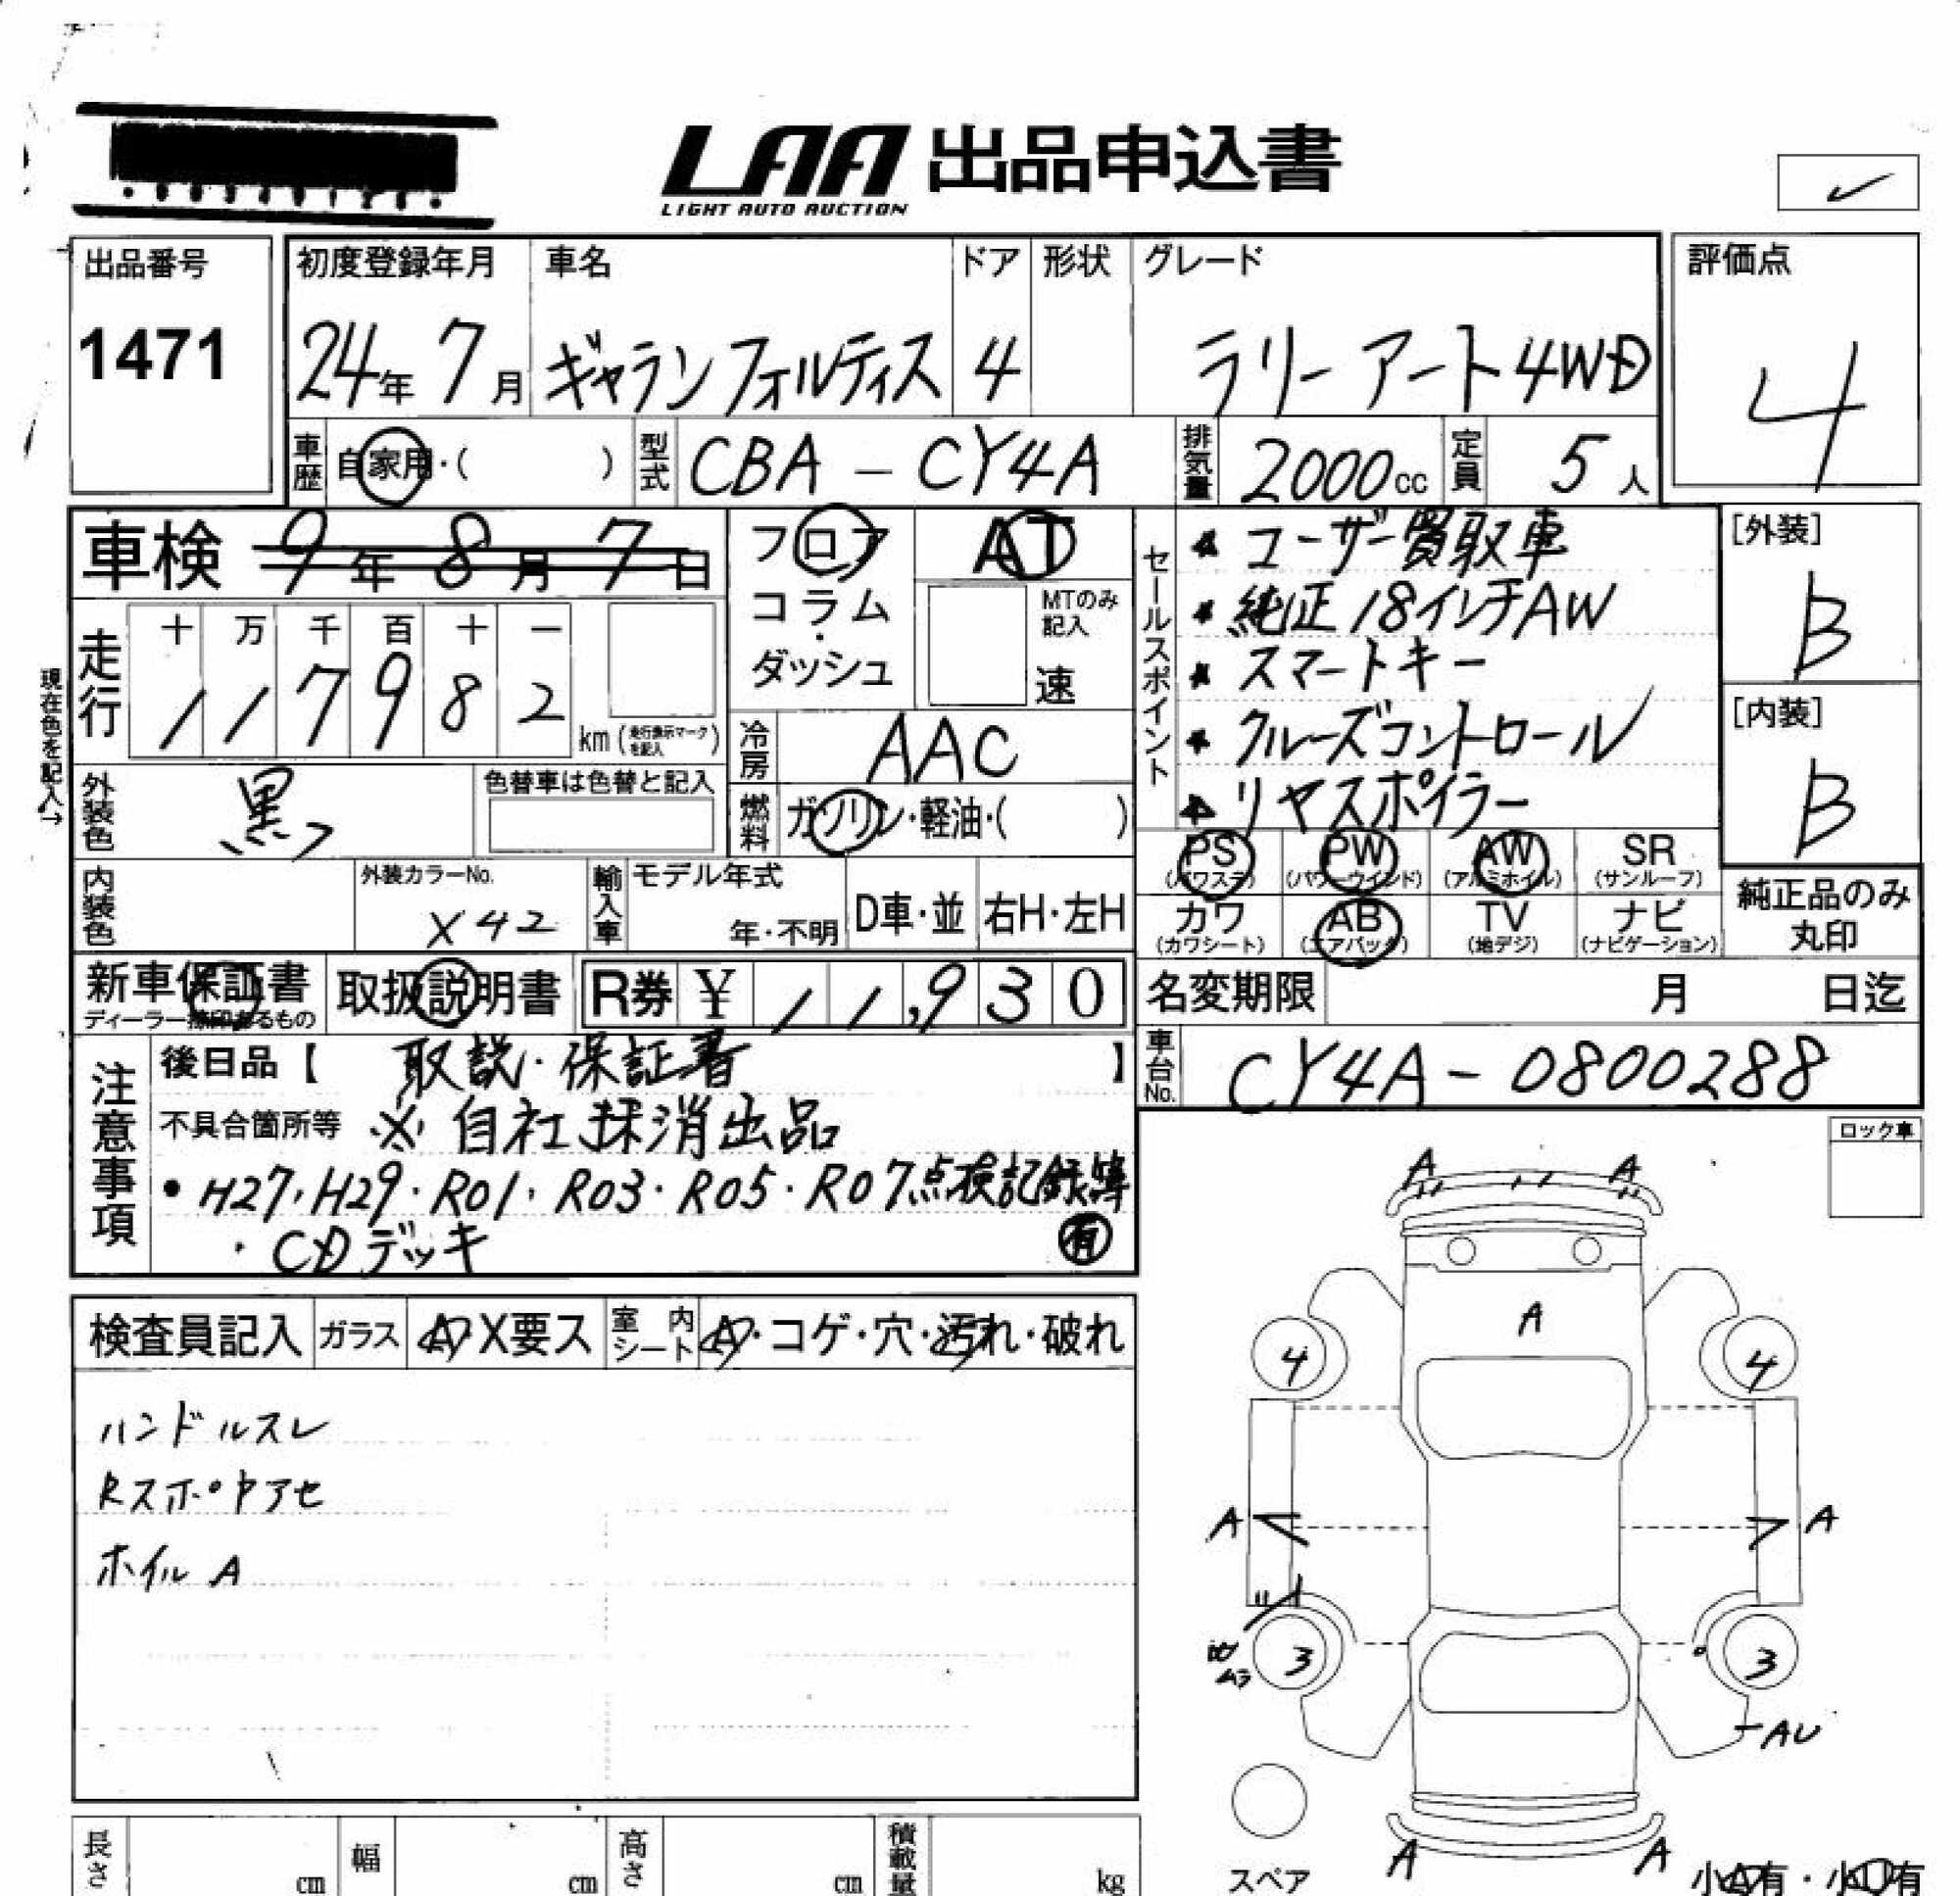 LAA 出品申込書
LIGHT AUTO AUCTION
出品番号
1471
初度登録年月
24年 7月
車名
ギャランフォルティス
ドア
4
形状
グレード
ラリーアート4WD
評価点
4
車歴
自家用・( )
型式
CBA-CY4A
排気量
2000cc
定員
5人
車検 9年 8月 7日
走行
十 万 千 百 十 一
1 1 7 9 8 2
km (走行表示マークを記入)
現在色を記入→
外装色
黒
色替車は色替と記入
内装色
外装カラーNo.
X42
フロア
コラム
・
ダッシュ
AT
MTのみ記入
速
冷房
AAC
燃料
ガソリン・軽油・( )
輸入車
モデル年式
年・不明
D車・並
右H・左H
セールスポイント
★ ユーザー買取車
★ 純正18インチAW
★ スマートキー
★ クルーズコントロール
★ リヤスポイラー
[外装]
B
[内装]
B
PS (パワステ)
PW (パワーウインド)
AW (アルミホイル)
SR (サンルーフ)
カワ (カワシート)
AB (エアバック)
TV (地デジ)
ナビ (ナビゲーション)
純正品のみ丸印
新車保証書
ディーラー捺印あるもの
取扱説明書
R券 ¥ 11,930
名変期限 月 日迄
車台No.
CY4A-0800288
注意事項
後日品【 取説・保証書 】
不具合箇所等 ※自社抹消出品
・H27・H29・R01・R03・R05・R07点検記録簿
有
・CDデッキ
ロック車
検査員記入
ガラス
A・X要ス
室内シート
A・コゲ・穴・汚れ・破れ
ハンドルスレ
Rスポイラアセ
ホイルA
A A
A
4 4
A A
3 3
ムラ
AU
A A
スペア
小A有・小U有
長さ cm
幅 cm
高さ cm
積載量 kg